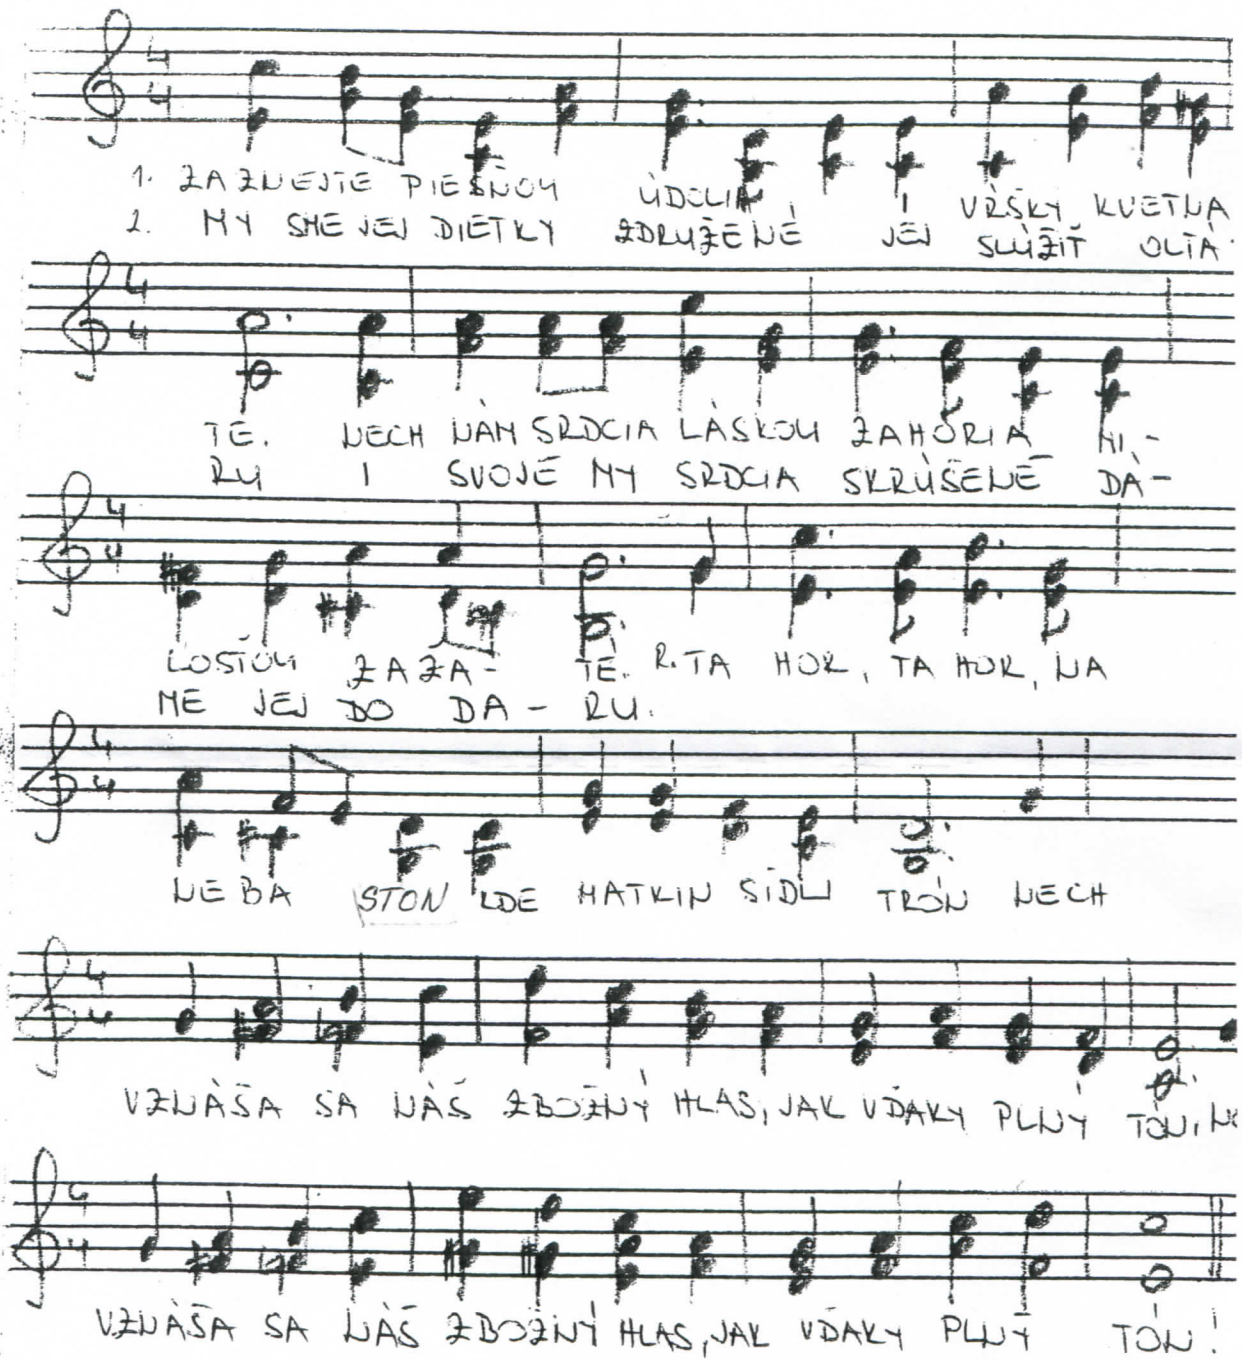 1. ZAZNEJTE PIESŇOU ÚDOLIA, I VŔŠKY KVETNA
2. MY SME JEJ DIETKY ZDRUŽENÉ JEJ SLÚŽIŤ OLTÁ
TÉ. NECH NÁM SRDCIA LÁSKOU ZAHORIA MI-
RU I SVOJE MY SRDCIA SKRÚŠENÉ DÁ-
LOSŤOU ZAŽA- TÉ. R. TA HOR, TA HOR, NA
ME JEJ DO DA- RU.
NEBA STON KDE MATKIN SÍDLI TRÓN NECH
VZNÁŠA SA NÁŠ ZBOŽNÝ HLAS, JAK VĎAKY PLNÝ TÓN,
VZNÁŠA SA NÁŠ ZBOŽNÝ HLAS, JAK VĎAKY PLNÝ TÓN!